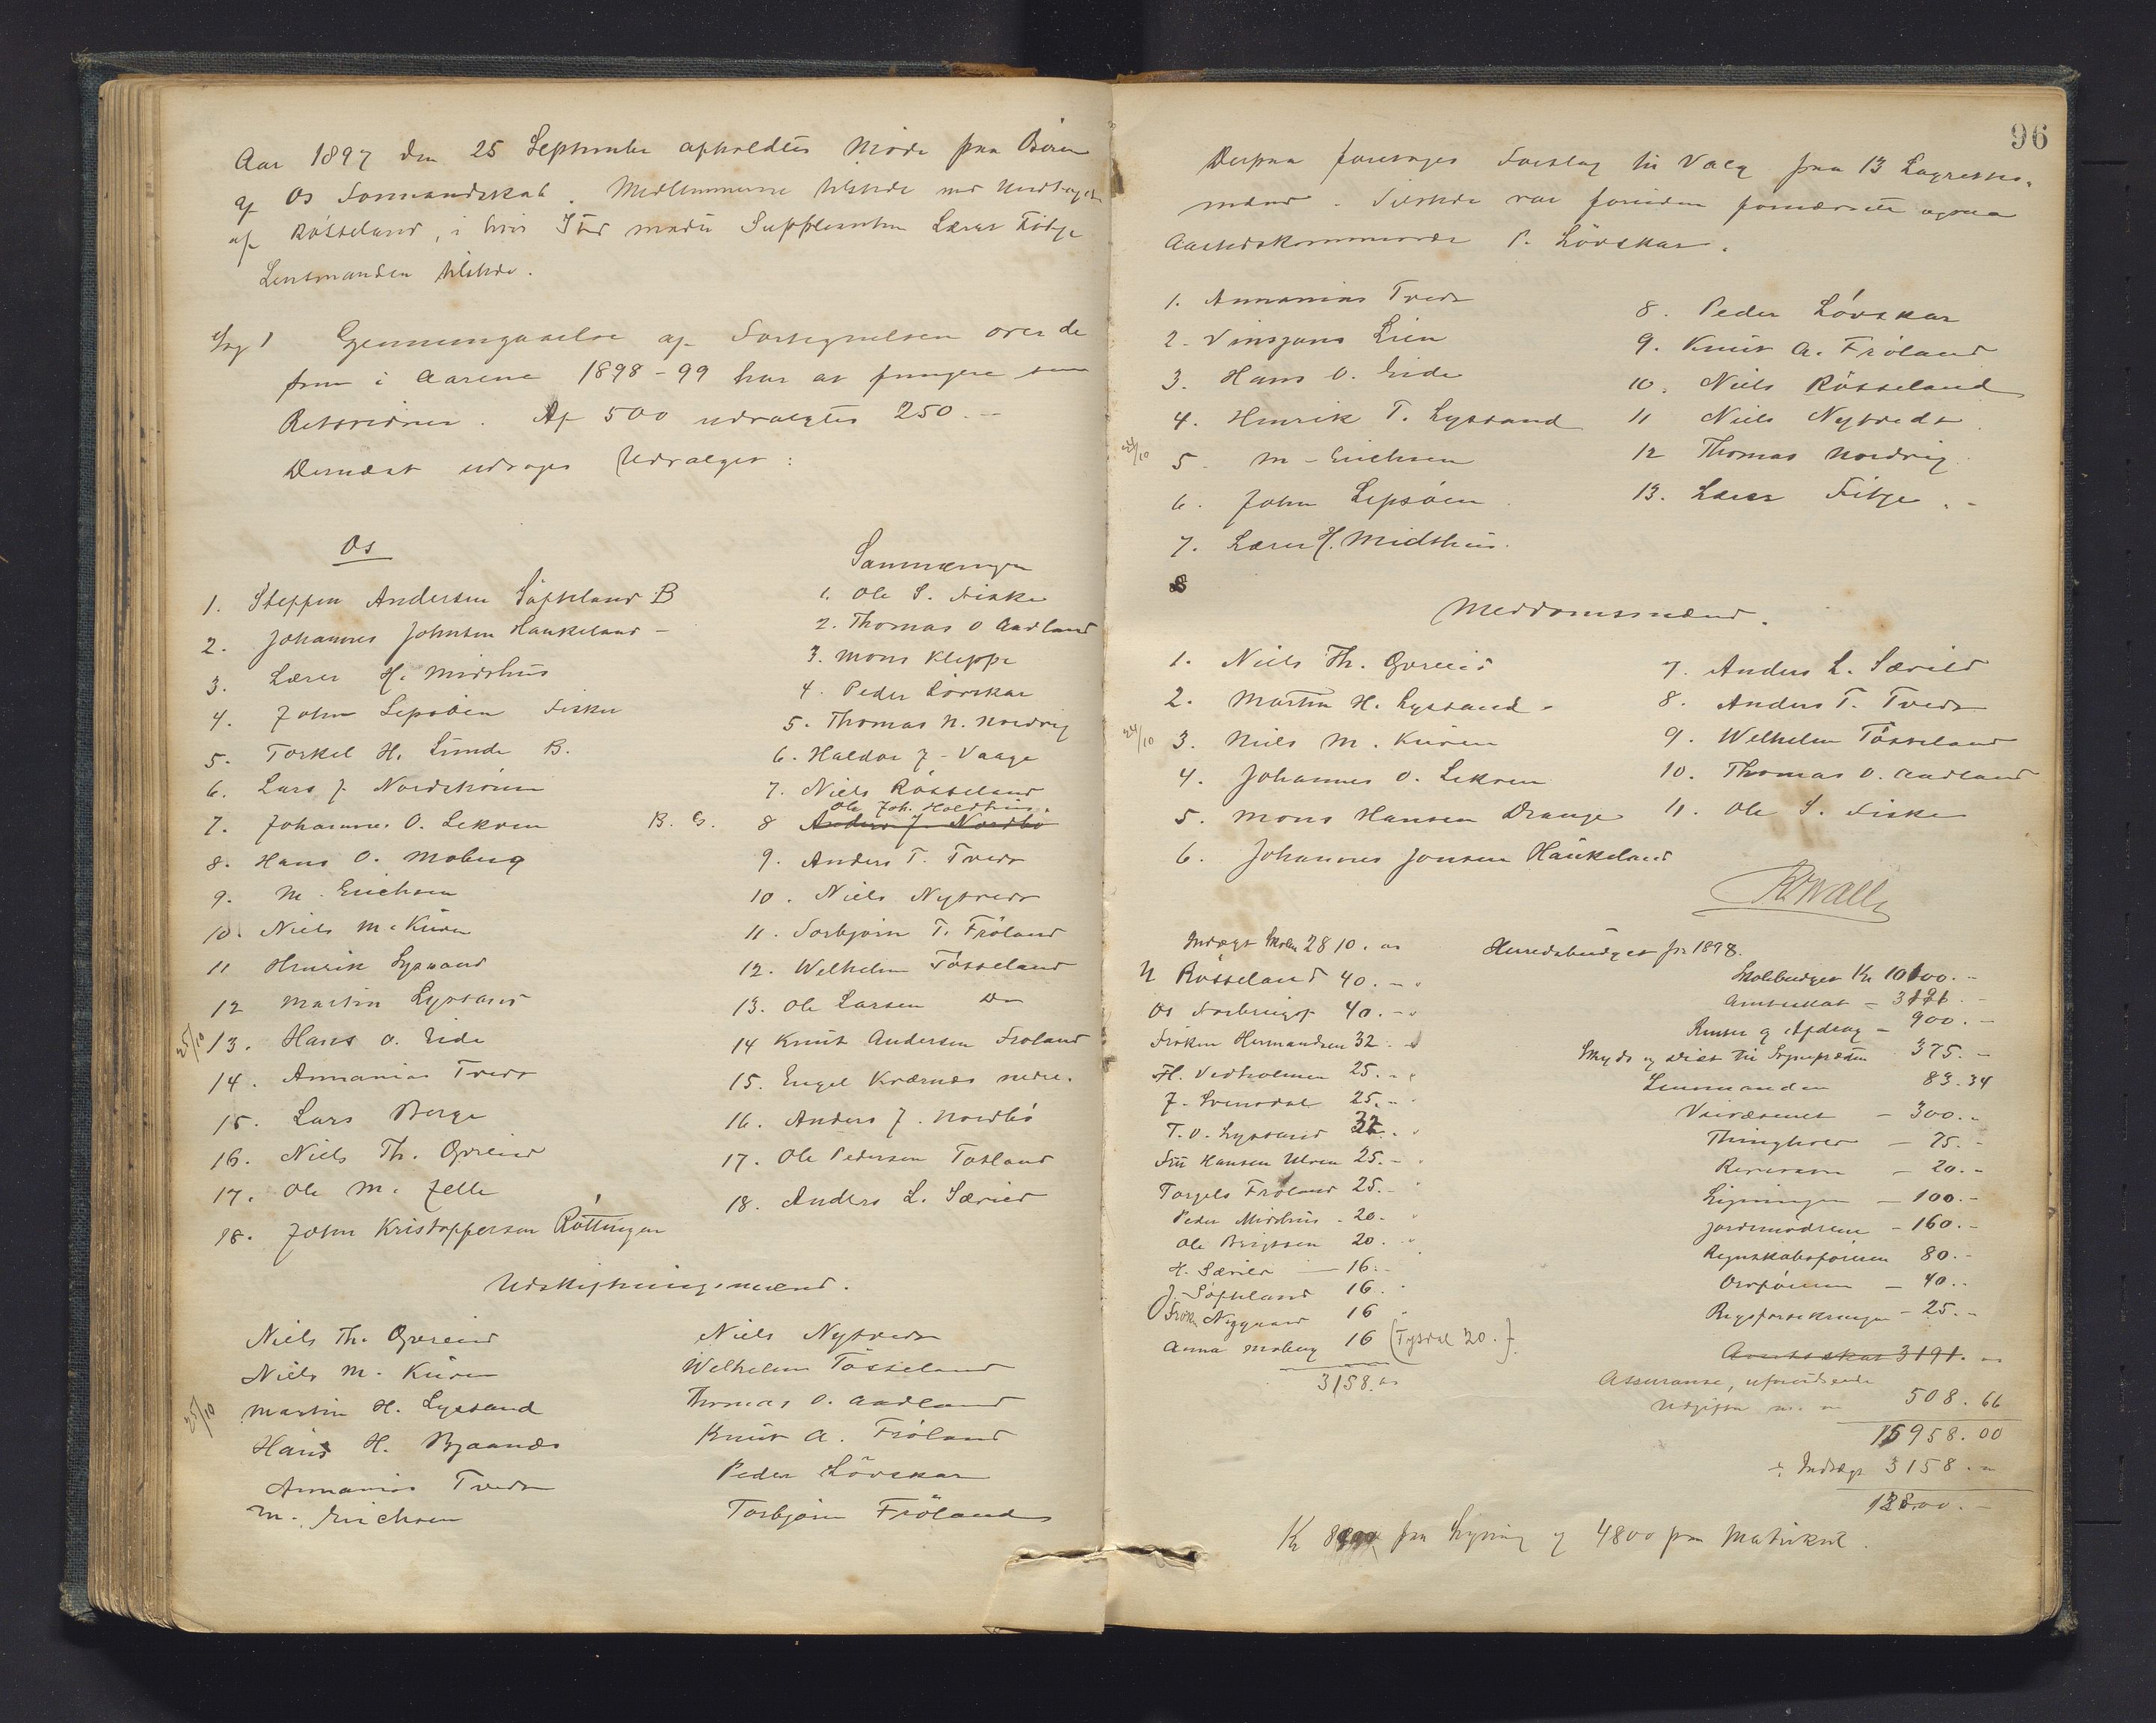 Aar 1897 den 25 September afholdtes Møde paa Øiren
af Os Formandskab. Medlemmerne tilstede med Undtagelse
af Røsseland, i hvis Sted mødte Suppleanten Lærer Fitje
Lensmanden tilstede.
Sag 1 Gjennemgaaelse af Fortegnelsen over de
som i Aarene 1898-99 har at fungere som
Retsvidner. Af 500 udvalgtes 250.--
Dernæst udtoges Udvalget:
Os
1. Steffen Andersen Søfteland B
2. Johannes Johnsen Haukeland -
3. Lærer H. Midthus
4. John Lepsöen Fisker
5. Torkel H. Lunde B.
6. Lars J. Nordströnen
7. Johannes O. Lekven B. G.
8. Hans O. Moberg
9. M. Erichsen
10. Niels M. Kuven
11 Henrik Lyssand
12 Martin Lyssand
25/10
13. Hans O. Eide
14. Annanias Tvedt
15. Lars Borge
16. Niels Th. Qvreind
17. Ole M. Helle
18. John Kristofferson Röttingen
Samnangen
1. Ole S. Fiske
2. Thomas O Aadland
3. Mons Kleppe
4. Peder Lövskar
5. Thomas N. Nordvig
6. Haldor J. Vaage
7. Niels Rösseland
Ole Joh. Holdhus.
8 Anders J. Nordbö
9. Anders T. Tvedt
10. Niels Nytvedt
11. Torbjørn T. Fröland
12. Welhelm Tösseland
13. Ole Larsen Do
14 Knut Andersen Fröland
15. Engel Kværnes nedre.
16. Anders J. Nordbö
17. Ole Pedersen Totland
18. Anders L. Særvold
Udskiftningsmænd.
Niels Th. Qvreind
Niels M. Kuven
25/10
Martin H. Lyssand
Hans H. Bjaanæs
Annanias Tvedt
M. Erichsen
Niels Nytvedt
Welhelm Tösseland
Thomas O. Aadland
Knut A. Fröland
Peder Lövskar
Torbjørn Fröland
96
Derpaa foretoges Forslag til Valg paa 13 Lagrettes-
mænd. Tilstede var foruden fornævnte ogsaa
P. Lövskar.
1. Annanias Tvedt
2. Vinsjans Lien
3. Hans O. Eide
4. Henrik T. Lyssand
24/10
5. M. Erichsen
6. John Lepsöen
7. Lærer H. Midthus.
8
8. Peder Lövskar
9. Knut A. Fröland
10. Niels Rösseland
11 Niels Nytvedt
12 Thomas Nordvig
13. Lærer Fitje.-
Meddomsmænd.
1. Niels Th. Qvreind
2. Martin H. Lyssand.
24/10
3. Niels M. Kuven
4. Johannes O. Lekven
5. Mons Hansen Drange
6. Johannes Jonsen Haukeland
7. Anders L. Særvold
8. Anders T. Tvedt
9. Welhelm Tösseland
10. Thomas O. Aadland
11. Ole S. Fiske
Indtægt Skolen 2810.00
N Rösseland 40.-
Os 40.-
Fröken Hermandsen 32.-
H. Vedholmen 25.-
J. Svensdal 25.-
T. O. Lyssand 32.
Fru Hansen Ulven 25.-
Torgels Fröland 25.-
Peder Midthus 20.-
Ole Brigtsen 20.-
H. Særvold - 16.-
J. Söfteland 16.
Frök. Nygaard 16
Anna Moberg 16 (Tysdal 20.)
3158.00
Herredsbudget for 1898.
Skolebudget Kr 10100.-
Amtsskat - 3191.-
Renter og Afdrag - 900.-
Skyds og Diæt til 375.-
Lensmanden 83.34
Veivæsenet - 300.-
Thinghold - 75.-
Revisorer - 20.-
Ligningen - 100.-
Jordemödrene - 160.-
Regnskabsföreren 80.-
Ordföreren - 40.-
Bygforsikringen - 25.-
Amtsskat 3191.
Assurance, uforudseede
Udgifter m. m. 508.66
15958.00
÷ Indtægt 3158.-
12800.-
Kr paa Ligning og 4800 paa Matrikul.